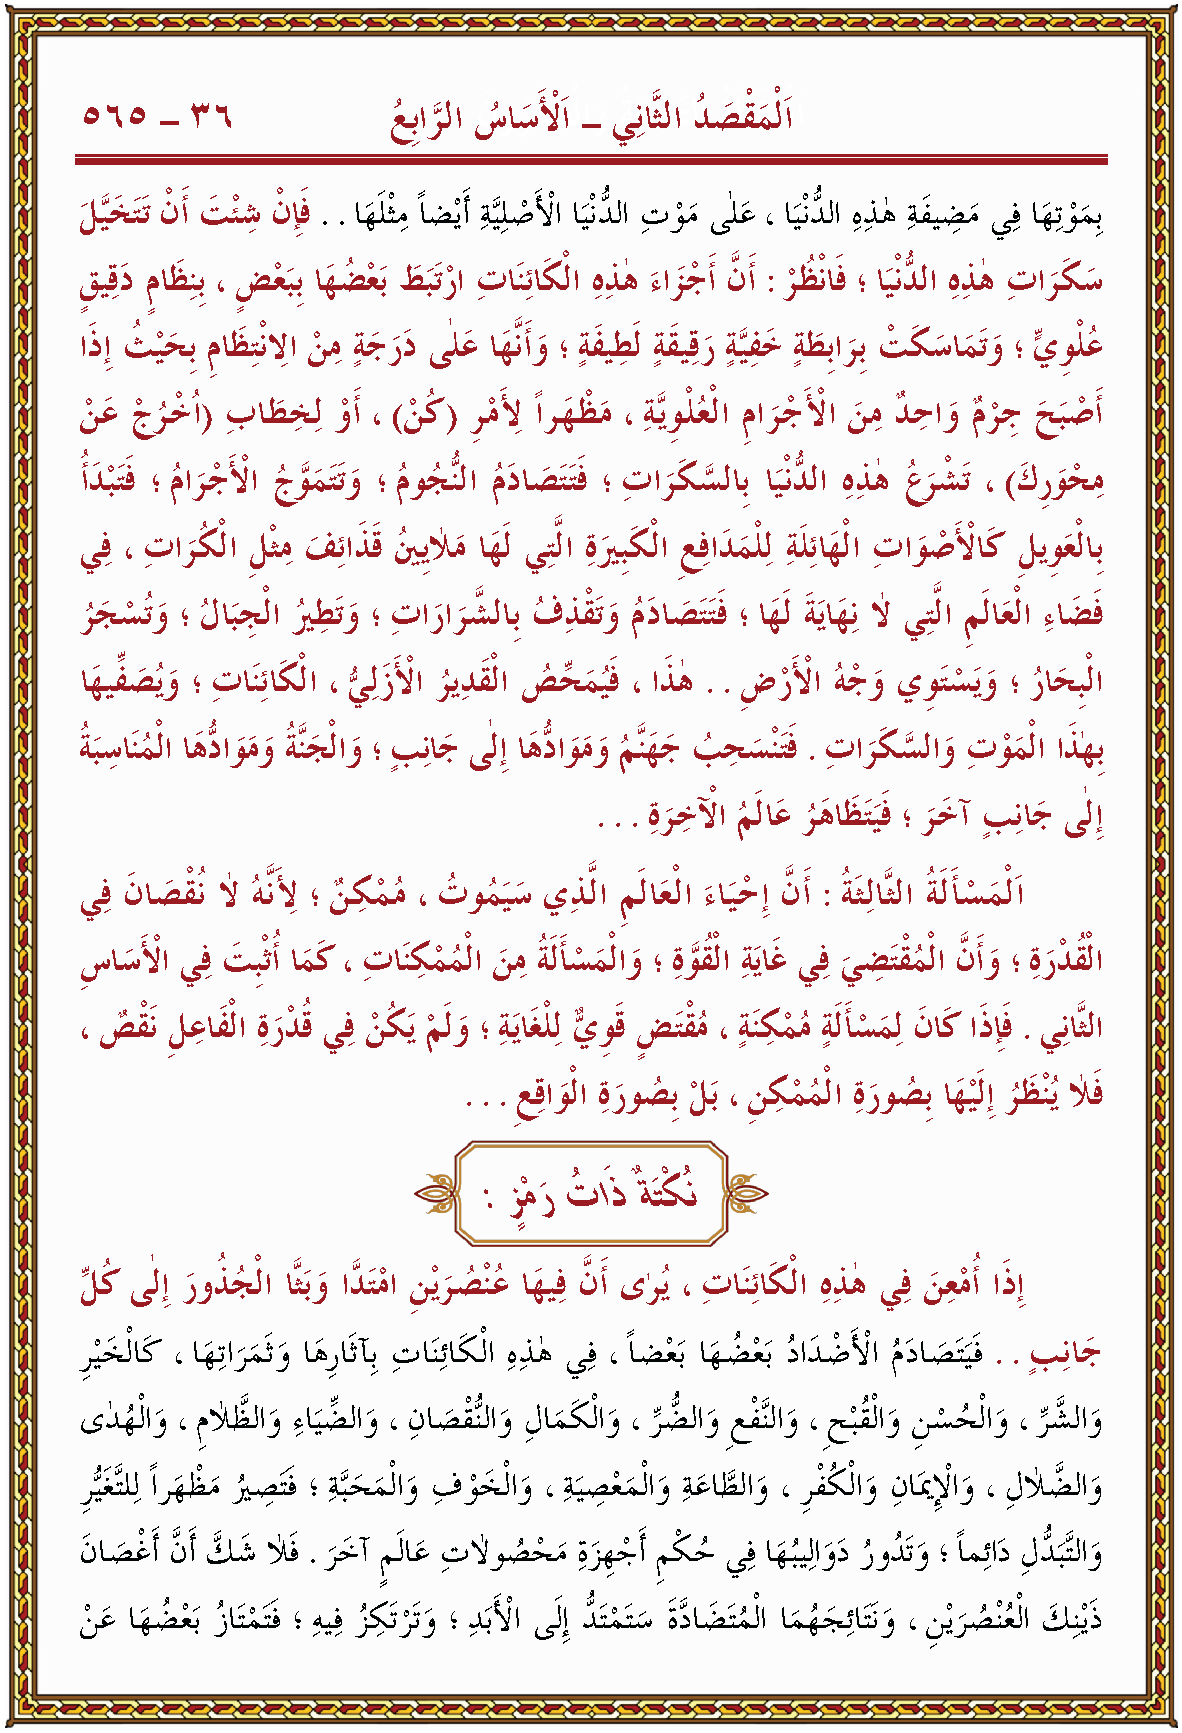 اَلْمَقْصَدُ الثَّانِي ـ اَلْأَسَاسُ الرَّابِعُ ٣٦ ـ ٥٦٥
بِمَوْتِهَا فِي مَضِيفَةِ هٰذِهِ الدُّنْيَا ، عَلٰى مَوْتِ الدُّنْيَا الْأَصْلِيَّةِ أَيْضاً مِثْلَهَا . . فَإِنْ شِئْتَ أَنْ تَتَخَيَّلَ
سَكَرَاتِ هٰذِهِ الدُّنْيَا ؛ فَانْظُرْ : أَنَّ أَجْزَاءَ هٰذِهِ الْكَائِنَاتِ ارْتَبَطَ بَعْضُهَا بِبَعْضٍ ، بِنِظَامٍ دَقِيقٍ
عُلْوِيٍّ ؛ وَتَمَاسَكَتْ بِرَابِطَةٍ خَفِيَّةٍ رَقِيقَةٍ لَطِيفَةٍ ؛ وَأَنَّهَا عَلٰى دَرَجَةٍ مِنْ الِانْتِظَامِ بِحَيْثُ إِذَا
أَصْبَحَ جِرْمٌ وَاحِدٌ مِنَ الْأَجْرَامِ الْعُلْوِيَّةِ ، مَظْهَراً لِأَمْرِ (كُنْ) ، أَوْ لِخِطَابِ (اُخْرُجْ عَنْ
مِحْوَرِكَ) ، تَشْرَعُ هٰذِهِ الدُّنْيَا بِالسَّكَرَاتِ ؛ فَتَتَصَادَمُ النُّجُومُ ؛ وَتَتَمَوَّجُ الْأَجْرَامُ ؛ فَتَبْدَأُ
بِالْعَوِيلِ كَالْأَصْوَاتِ الْهَائِلَةِ لِلْمَدَافِعِ الْكَبِيرَةِ الَّتِي لَهَا مَلَايِينُ قَذَائِفَ مِثْلِ الْكُرَاتِ ، فِي
فَضَاءِ الْعَالَمِ الَّتِي لَا نِهَايَةَ لَهَا ؛ فَتَتَصَادَمُ وَتَقْذِفُ بِالشَّرَارَاتِ ؛ وَتَطِيرُ الْجِبَالُ ؛ وَتُسْجَرُ
الْبِحَارُ ؛ وَيَسْتَوِي وَجْهُ الْأَرْضِ . . هٰذَا ، فَيُمَحِّصُ الْقَدِيرُ الْأَزَلِيُّ ، الْكَائِنَاتِ ؛ وَيُصَفِّيهَا
بِهٰذَا الْمَوْتِ وَالسَّكَرَاتِ . فَتَنْسَحِبُ جَهَنَّمُ وَمَوَادُّهَا إِلٰى جَانِبٍ ؛ وَالْجَنَّةُ وَمَوَادُّهَا الْمُنَاسِبَةُ
إِلٰى جَانِبٍ آخَرَ ؛ فَيَتَظَاهَرُ عَالَمُ الْآخِرَةِ . . .
اَلْمَسْأَلَةُ الثَّالِثَةُ : أَنَّ إِحْيَاءَ الْعَالَمِ الَّذِي سَيَمُوتُ ، مُمْكِنٌ ؛ لِأَنَّهُ لَا نُقْصَانَ فِي
الْقُدْرَةِ ؛ وَأَنَّ الْمُقْتَضِيَ فِي غَايَةِ الْقُوَّةِ ؛ وَالْمَسْأَلَةُ مِنَ الْمُمْكِنَاتِ ، كَمَا أُثْبِتَ فِي الْأَسَاسِ
الثَّانِي . فَإِذَا كَانَ لِمَسْأَلَةٍ مُمْكِنَةٍ ، مُقْتَضٍ قَوِيٌّ لِلْغَايَةِ ؛ وَلَمْ يَكُنْ فِي قُدْرَةِ الْفَاعِلِ نَقْصٌ ،
فَلَا يُنْظَرُ إِلَيْهَا بِصُورَةِ الْمُمْكِنِ ، بَلْ بِصُورَةِ الْوَاقِعِ . . .
نُكْتَةٌ ذَاتُ رَمْزٍ :
إِذَا أُمْعِنَ فِي هٰذِهِ الْكَائِنَاتِ ، يُرٰى أَنَّ فِيهَا عُنْصُرَيْنِ امْتَدَّا وَبَثَّا الْجُذُورَ إِلٰى كُلِّ
جَانِبٍ . . فَيَتَصَادَمُ الْأَضْدَادُ بَعْضُهَا بَعْضاً ، فِي هٰذِهِ الْكَائِنَاتِ بِآثَارِهَا وَثَمَرَاتِهَا ، كَالْخَيْرِ
وَالشَّرِّ ، وَالْحُسْنِ وَالْقُبْحِ ، وَالنَّفْعِ وَالضُّرِّ ، وَالْكَمَالِ وَالنُّقْصَانِ ، وَالضِّيَاءِ وَالظَّلَامِ ، وَالْهُدٰى
وَالضَّلَالِ ، وَالْإِيمَانِ وَالْكُفْرِ ، وَالطَّاعَةِ وَالْمَعْصِيَةِ ، وَالْخَوْفِ وَالْمَحَبَّةِ ؛ فَتَصِيرُ مَظْهَراً لِلتَّغَيُّرِ
وَالتَّبَدُّلِ دَائِماً ؛ وَتَدُورُ دَوَالِيبُهَا فِي حُكْمِ أَجْهِزَةِ مَحْصُولَاتِ عَالَمٍ آخَرَ . فَلَا شَكَّ أَنَّ أَغْصَانَ
ذَيْنِكَ الْعُنْصُرَيْنِ ، وَنَتَائِجَهُمَا الْمُتَضَادَّةَ سَتَمْتَدُّ إِلَى الْأَبَدِ ؛ وَتَرْتَكِزُ فِيهِ ؛ فَتَمْتَازُ بَعْضُهَا عَنْ